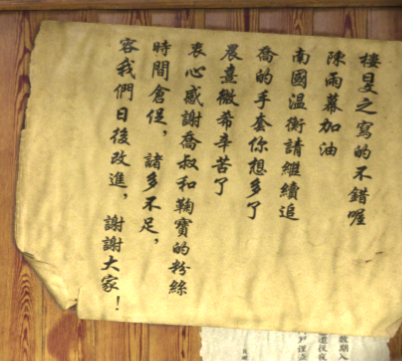 棲旻之寫的不錯喔
陳雨幕加油
南國溫衡請繼續追
喬的手套你想多了
晨熹微希辛苦了
衷心感謝喬叔和鞠寶的粉絲
時間倉促，諸多不足，
容我們日後改進，謝謝大家！